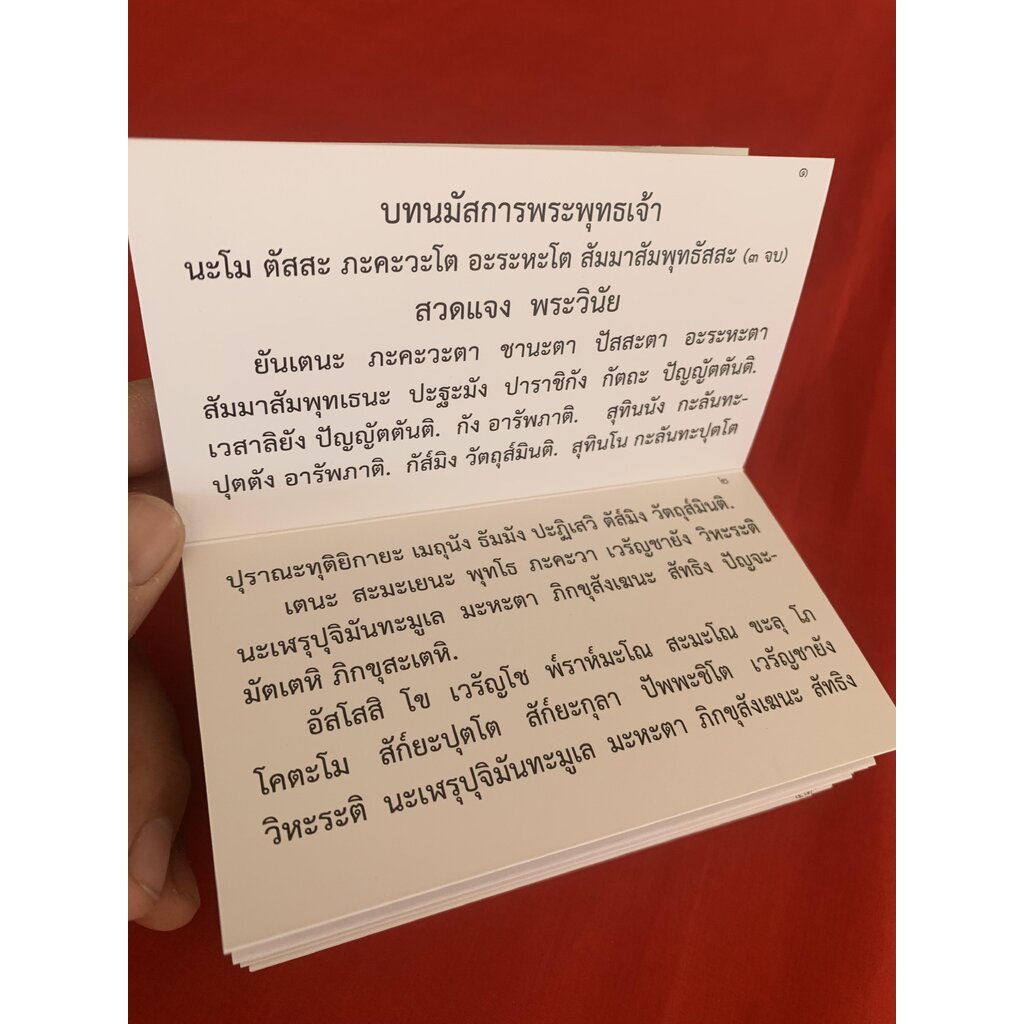 ๑
บทนมัสการพระพุทธเจ้า
นะโม ตัสสะ ภะคะวะโต อะระหะโต สัมมาสัมพุทธัสสะ (๓ จบ)
สวดแจง พระวินัย
ยันเตนะ ภะคะวะตา ชานะตา ปัสสะตา อะระหะตา
สัมมาสัมพุทเธนะ ปะฐะมัง ปาราชิกัง กัตถะ ปัญญัตตันติ.
เวสาลิยัง ปัญญัตตันติ. กัง อารัพภาติ. สุทินนัง กะลันทะ-
ปุตตัง อารัพภาติ. กัส๎มิง วัตถุส๎มินติ. สุทินโน กะลันทะปุตโต
๒
ปุราณะทุติยิกายะ เมถุนัง ธัมมัง ปะฏิเสวิ ตัส๎มิง วัตถุส๎มินติ.
เตนะ สะมะเยนะ พุทโธ ภะคะวา เวรัญชายัง วิหะระติ
นะเฬรุปุจิมันทะมูเล มะหะตา ภิกขุสังเฆนะ สัทธิง ปัญจะ-
มัตเตหิ ภิกขุสะเตหิ.
อัสโสสิ โข เวรัญโช พ๎ราห๎มะโณ สะมะโณ ขะลุ โภ
โคตะโม สัก๎ยะปุตโต สัก๎ยะกุลา ปัพพะชิโต เวรัญชายัง
วิหะระติ นะเฬรุปุจิมันทะมูเล มะหะตา ภิกขุสังเฆนะ สัทธิง